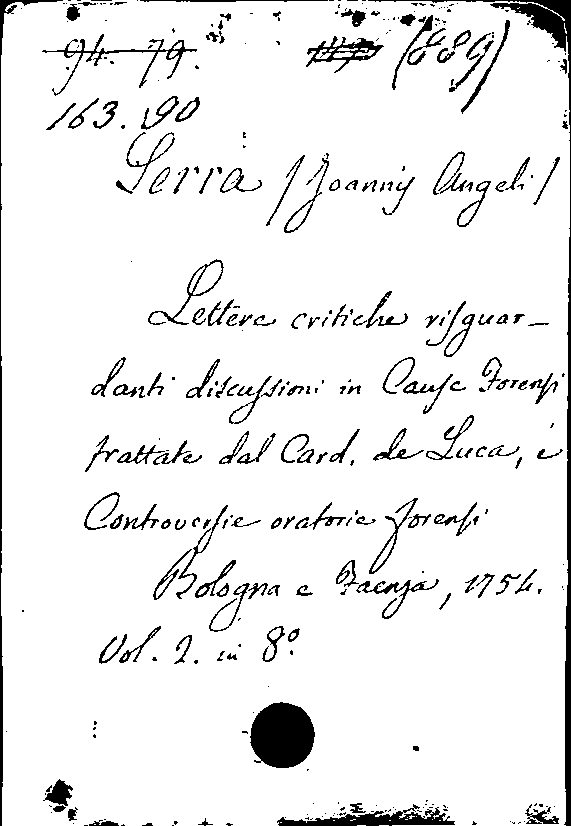 94. 79. (889)
163. 90
Serra /Joannis Angeli/
Lettere critiche risguar-
danti discussioni in Cause Forensi
trattate dal Card. de Luca, e
Controversie oratorie forensi
Bologna e Faenza, 1754.
Vol. 2. in 8º